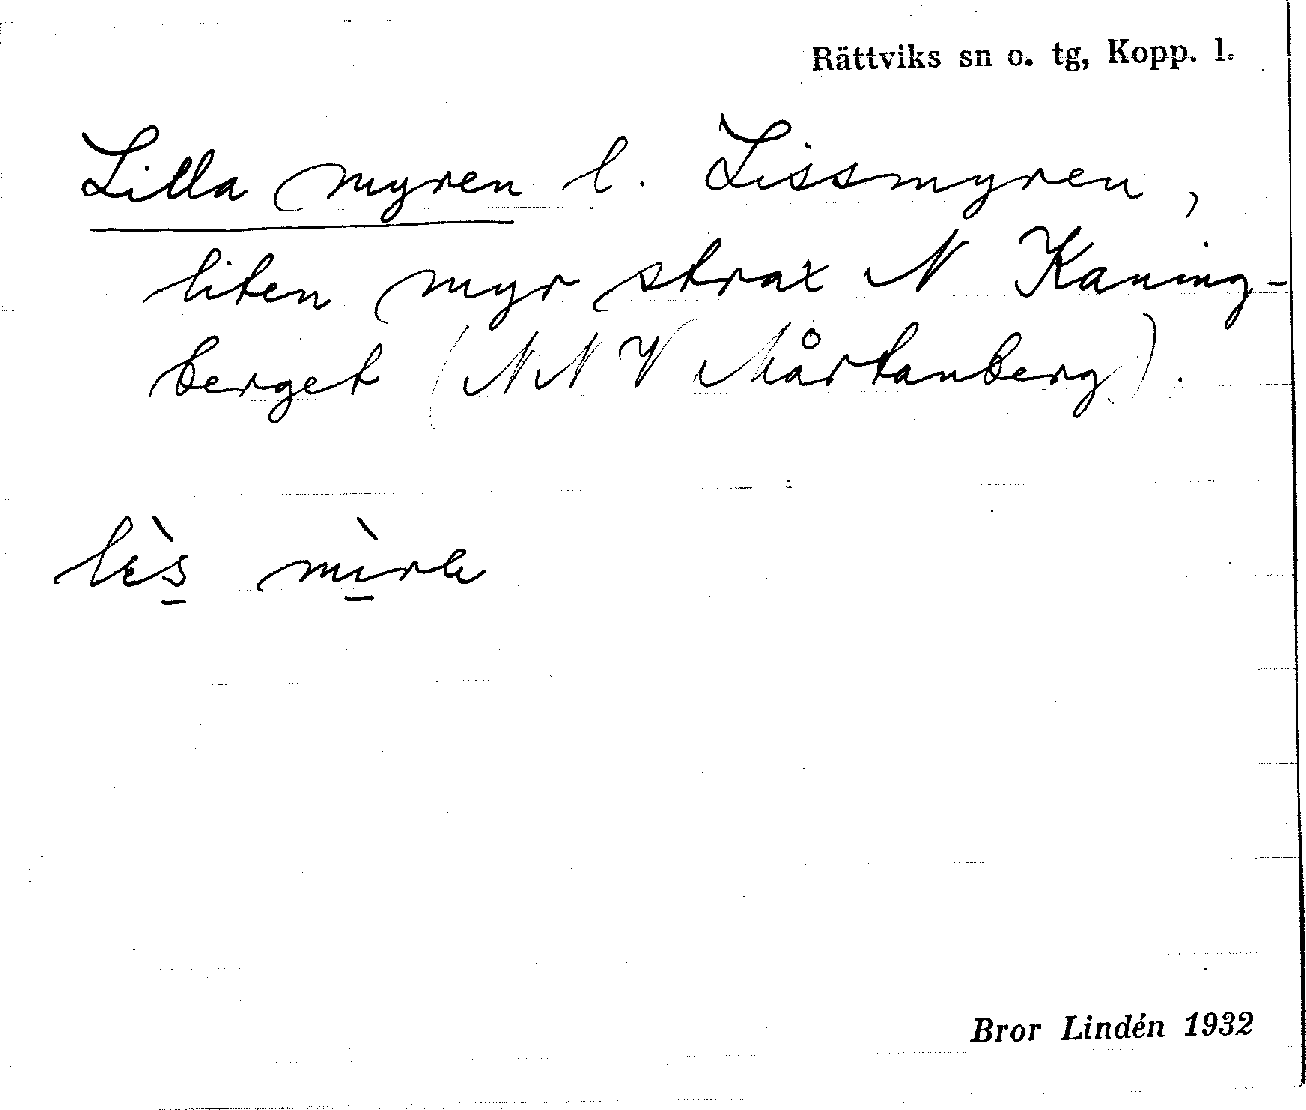 Rättviks sn o. tg, Kopp. l.
Lilla myren l. Lissmyren,
liten myr strax N Kaning-
berget (NNV Mårtanberg).
lὶs
Bror Lindén 1932